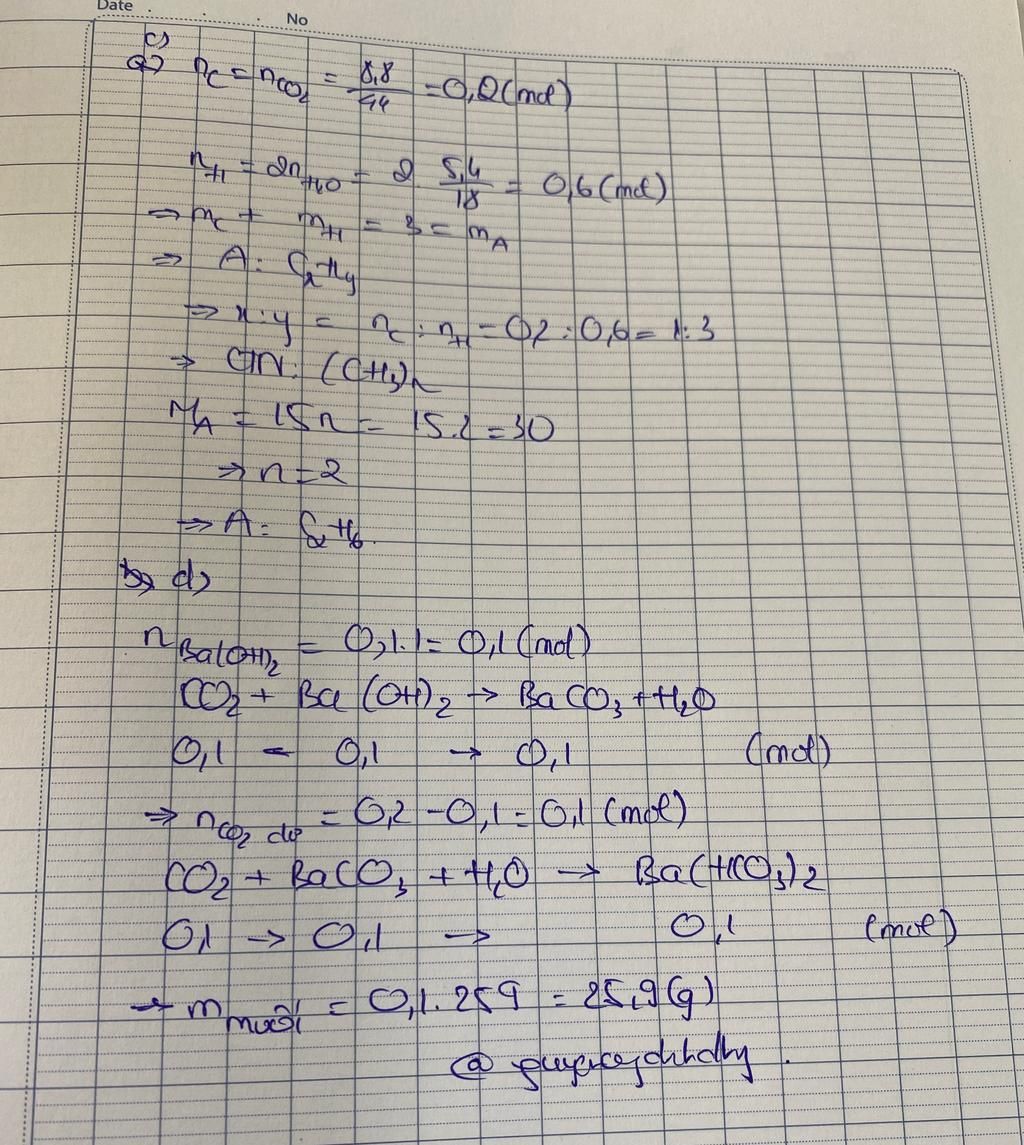 Date . . . No
c)
a) nC = nCO2 = 8,8/44 = 0,2 (mol)
nH = 2nH2O = 2. 5,4/18 = 0,6 (mol)
⇒ mC + mH = 3 = mA
⇒ A: CxHy
⇒ x:y = nC : nH = 0,2 : 0,6 = 1:3
⇒ CTN: (CH3)n
MA = 15n = 15.2 = 30
⇒ n = 2
⇒ A: C2H6.
b) d)
nBa(OH)2 = 0,1.1 = 0,1 (mol)
CO2 + Ba(OH)2 → BaCO3 + H2O
0,1 ← 0,1 → 0,1 (mol)
⇒ nCO2 dư = 0,2 - 0,1 = 0,1 (mol)
CO2 + BaCO3 + H2O → Ba(HCO3)2
0,1 → 0,1 → 0,1 (mol)
→ mmuối = 0,1.259 = 25,9 (g)